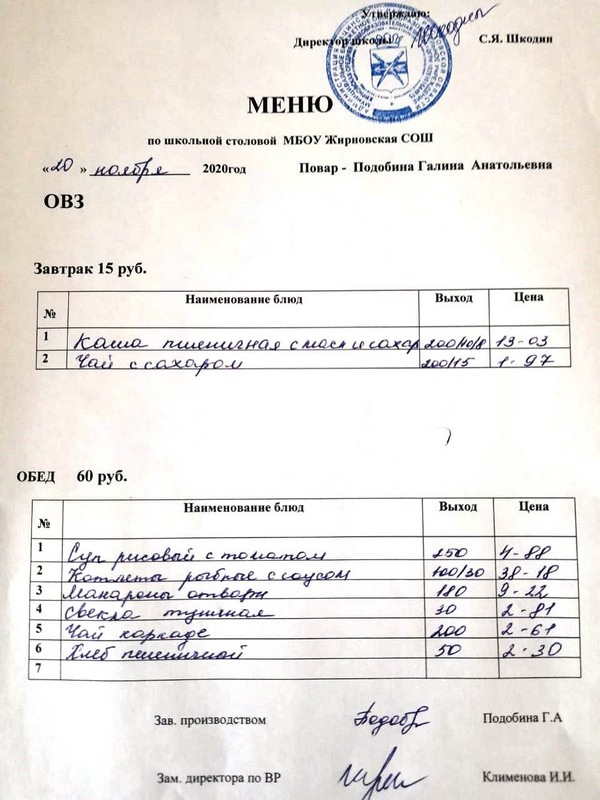 Утверждаю:
Директор школы С.Я. Шкодин
МЕНЮ
по школьной столовой МБОУ Жирновская СОШ
«20» ноября 2020год Повар - Подобина Галина Анатольевна
ОВЗ
Завтрак 15 руб.
№ Наименование блюд Выход Цена
1 Каша пшеничная с масл и сахар 200/10/8 13-03
2 Чай с сахаром 200/15 1-97
ОБЕД 60 руб.
№ Наименование блюд Выход Цена
1 Суп рисовый с томатом 250 4-88
2 Котлеты рыбные с соусом 100/30 38-18
3 Макароны отварн 180 9-22
4 Свекла тушеная 30 2-81
5 Чай каркаде 200 2-61
6 Хлеб пшеничной 50 2-30
7
Зав. производством Подобина Г.А
Зам. директора по ВР Клименова И.И.